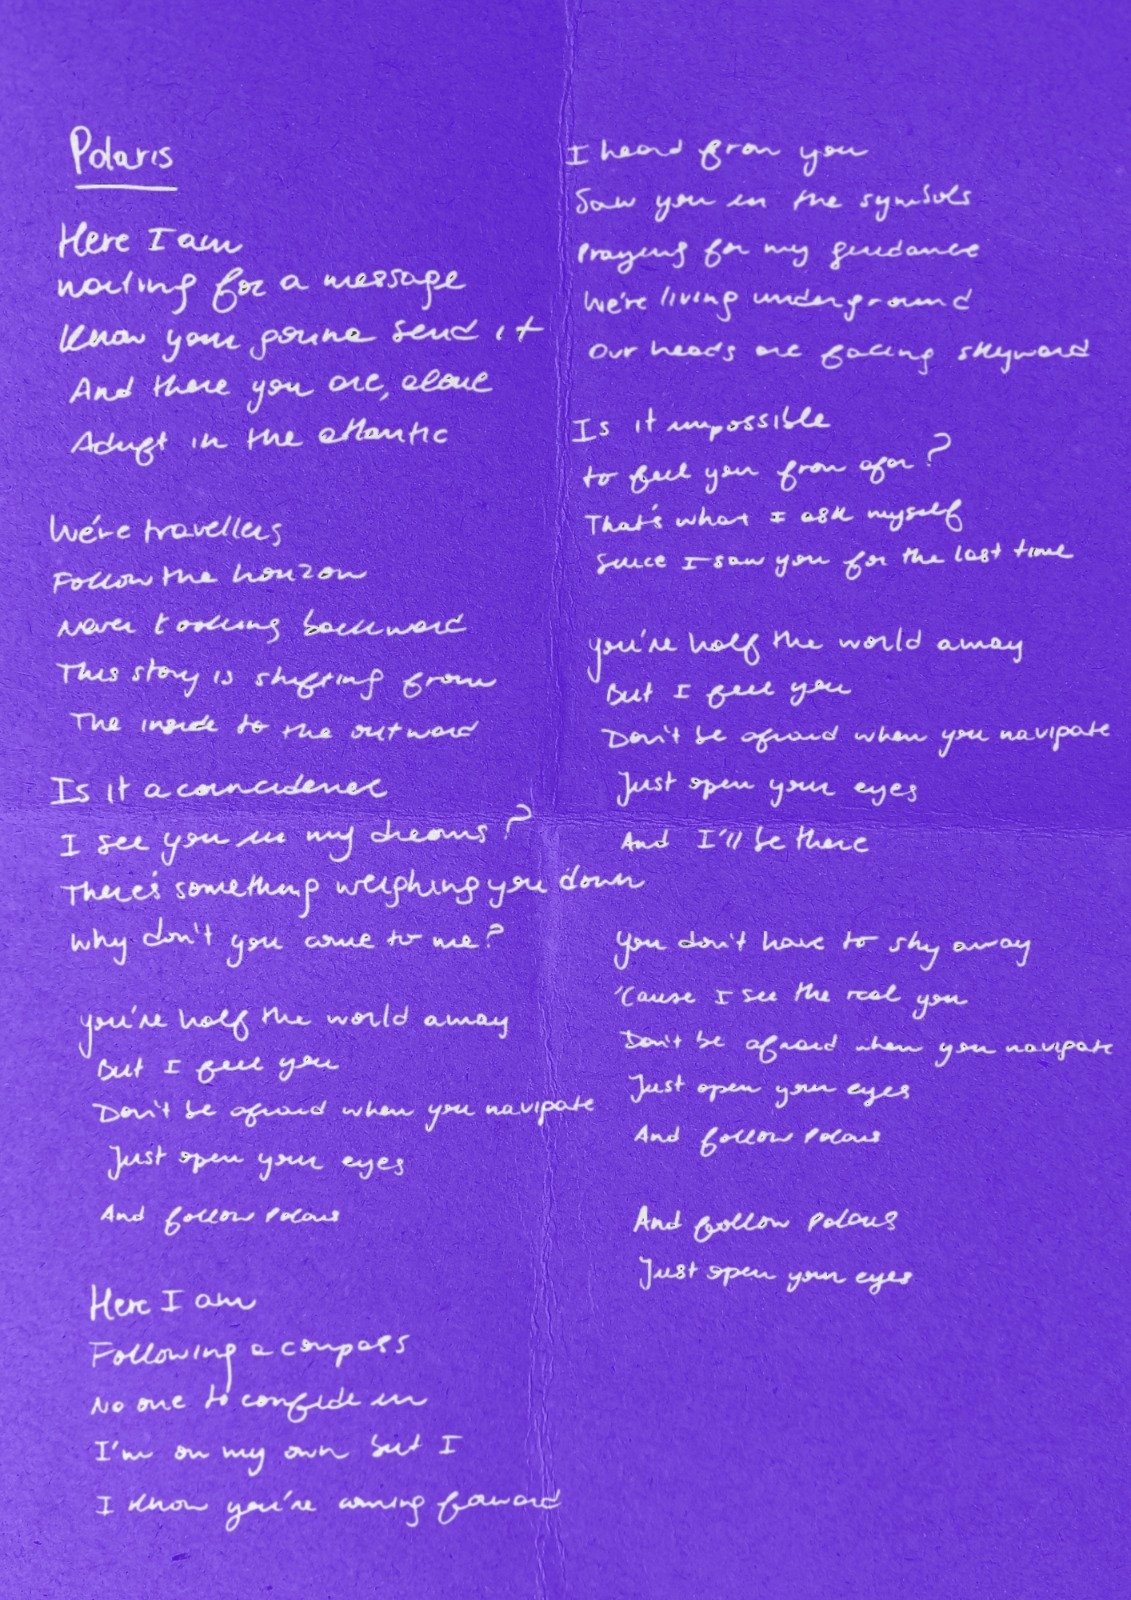 Polaris
Here I am
waiting for a message
Know your gonna send it
And there you are, alone
Adrift in the atlantic
We're travellers
Follow the horizon
Never looking backward
This story is shifting from
The inside to the outward
Is it a coincidence
I see you in my dreams?
There's something weighing you down
Why don't you come to me?
you're half the world away
But I feel you
Don't be afraid when you navigate
Just open your eyes
And follow Polaris
Here I am
Following a compass
No one to confide in
I'm on my own but I
I know you're coming forward
I heard from you
Saw you in the symbols
Praying for my guidance
We're living underground
Our heads are facing skyward
Is it impossible
to feel you from afar?
That's what I ask myself
Since I saw you for the last time
you're half the world away
But I feel you
Don't be afraid when you navigate
Just open your eyes
And I'll be there
you don't have to shy away
'Cause I see the real you
Don't be afraid when you navigate
Just open your eyes
And follow Polaris
And follow Polaris
Just open your eyes